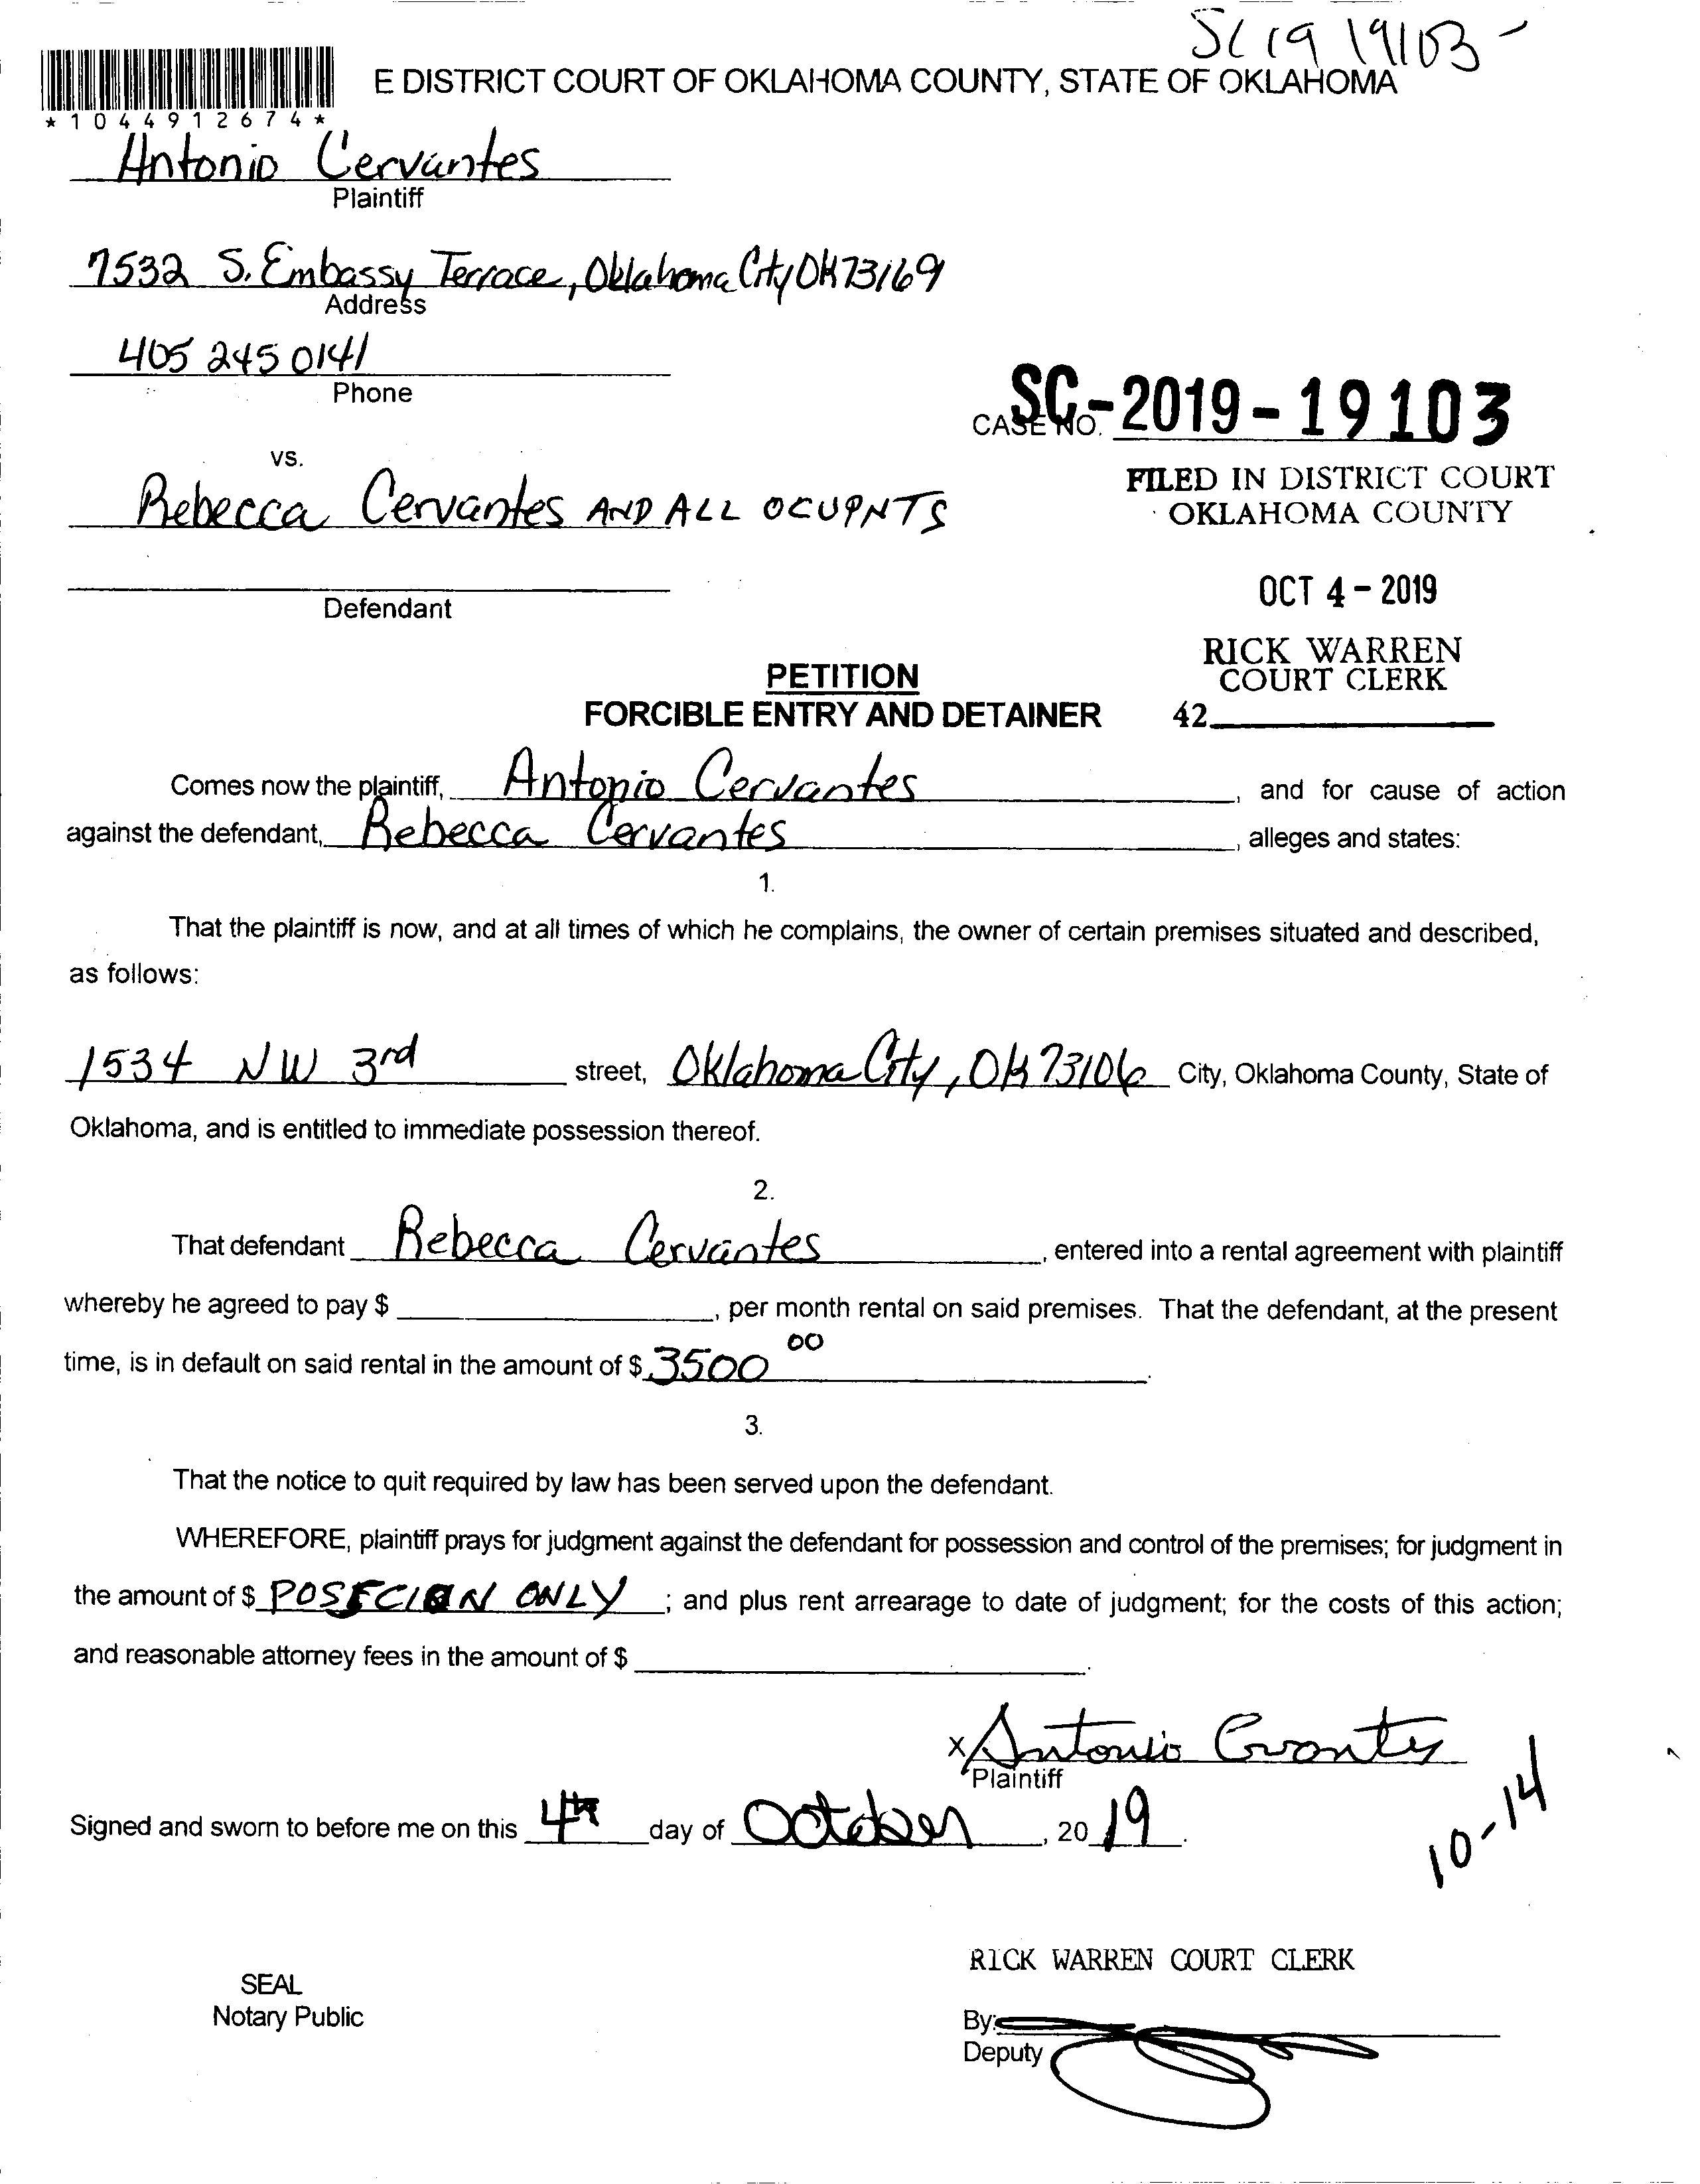 SC 19 19103 -
E DISTRICT COURT OF OKLAHOMA COUNTY, STATE OF OKLAHOMA
*1044912674*
Antonio Cervantes
Plaintiff
7532 S. Embassy Terrace, Oklahoma City OK 73169
Address
405 245 0141
Phone
CASE NO. SC-2019-19103
vs.
FILED IN DISTRICT COURT
OKLAHOMA COUNTY
Rebecca Cervantes AND ALL OCUPNTS
OCT 4 - 2019
Defendant
RICK WARREN
COURT CLERK
42
PETITION
FORCIBLE ENTRY AND DETAINER
Comes now the plaintiff, Antonio Cervantes, and for cause of action
against the defendant, Rebecca Cervantes, alleges and states:
1.
That the plaintiff is now, and at all times of which he complains, the owner of certain premises situated and described,
as follows:
1534 NW 3rd street, Oklahoma City, OK 73106 City, Oklahoma County, State of
Oklahoma, and is entitled to immediate possession thereof.
2.
That defendant Rebecca Cervantes, entered into a rental agreement with plaintiff
whereby he agreed to pay $ , per month rental on said premises. That the defendant, at the present
time, is in default on said rental in the amount of $ 3500 00.
3.
That the notice to quit required by law has been served upon the defendant.
WHEREFORE, plaintiff prays for judgment against the defendant for possession and control of the premises; for judgment in
the amount of $ POSECION ONLY ; and plus rent arrearage to date of judgment; for the costs of this action;
and reasonable attorney fees in the amount of $ .
x Antonio Cervantes
Plaintiff
Signed and sworn to before me on this 4th day of October, 20 19.
10-14
RICK WARREN COURT CLERK
SEAL
Notary Public
By:
Deputy